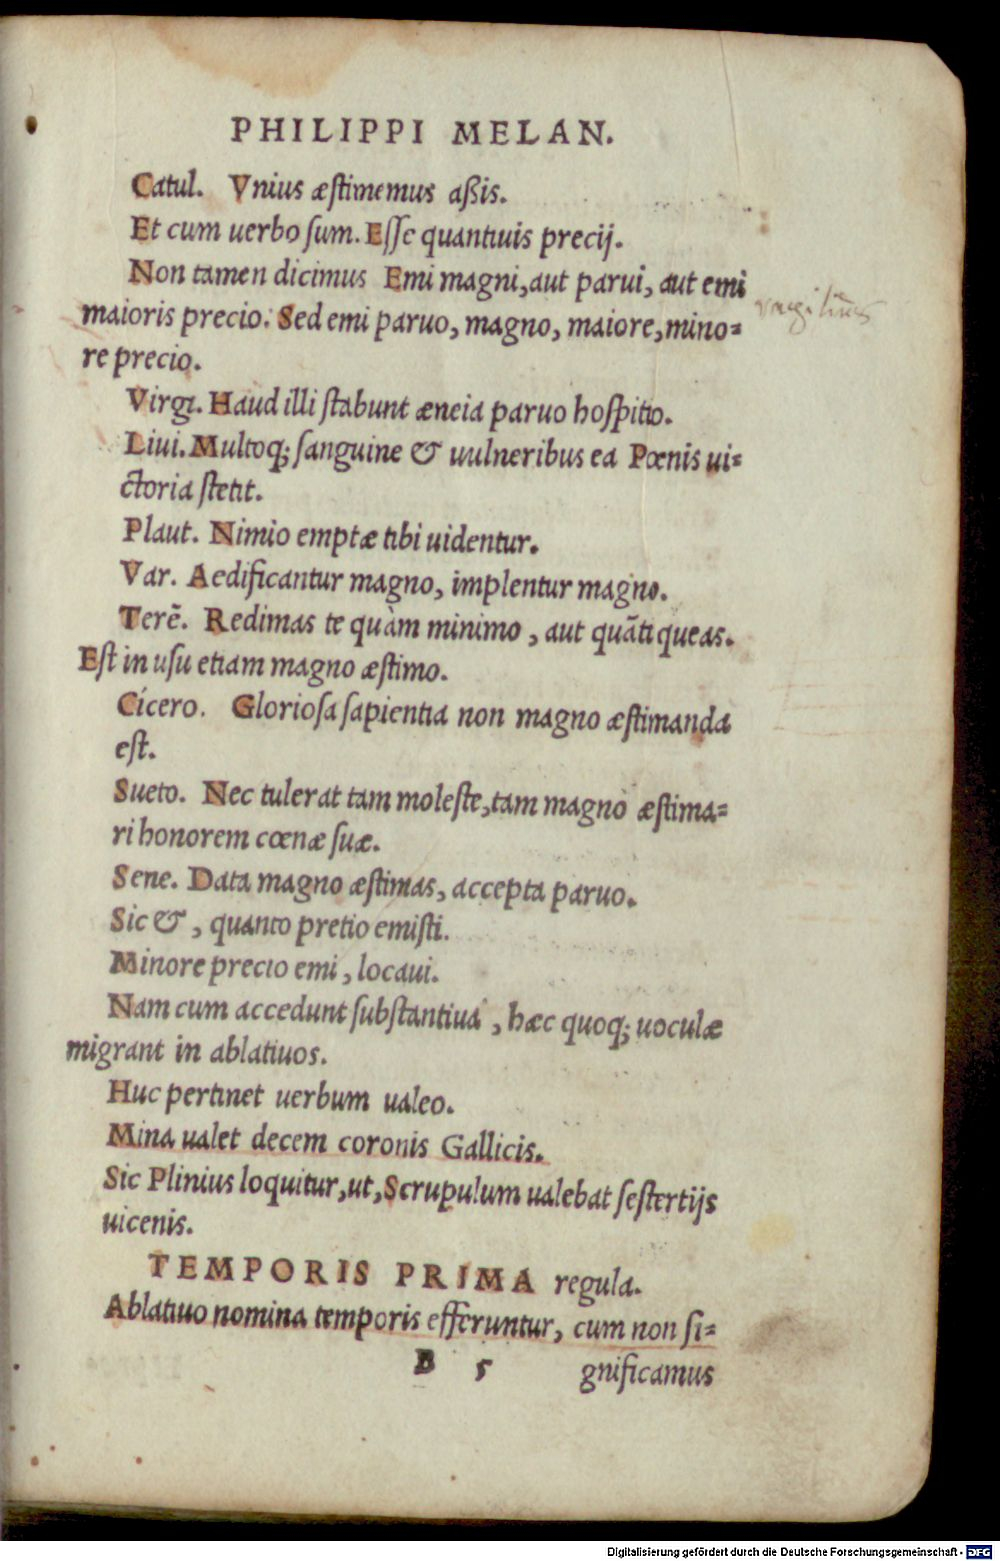 PHILIPPI MELAN.
Catul. Vnius æstimemus aßis.
Et cum uerbo sum. Esse quantiuis precij.
Non tamen dicimus Emi magni, aut parui, aut emi
maioris precio. Sed emi paruo, magno, maiore, mino-
re precio.
Virgi. Haud illi stabunt æneia paruo hospitio.
Liui. Multoq; sanguine & uulneribus ea Pœnis ui-
ctoria stetit.
Plaut. Nimio emptæ tibi uidentur.
Var. Aedificantur magno, implentur magno.
Terẽ. Redimas te quàm minimo, aut quãti queas.
Est in usu etiam magno æstimo.
Cicero. Gloriosa sapientia non magno æstimanda
est.
Sueto. Nec tulerat tam moleste, tam magno æstima-
ri honorem cœnæ suæ.
Sene. Data magno æstimas, accepta paruo.
Sic &, quanto pretio emisti.
Minore precio emi, locaui.
Nam cum accedunt substantiua, hæc quoq; uoculæ
migrant in ablatiuos.
Huc pertinet uerbum ualeo.
Mina ualet decem coronis Gallicis.
Sic Plinius loquitur, ut, Scrupulum ualebat sestertijs
uicenis.
TEMPORIS PRIMA regula.
Ablatiuo nomina temporis efferuntur, cum non si-
B 5 gnificamus
Digitalisierung gefördert durch die Deutsche Forschungsgemeinschaft - DFG